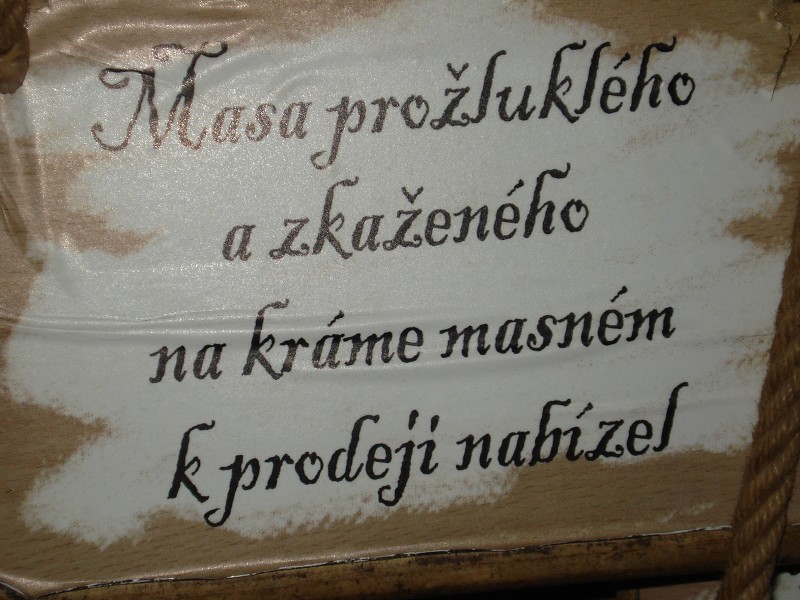 Masa prožluklého
a zkaženého
na kráme masném
k prodeji nabízel